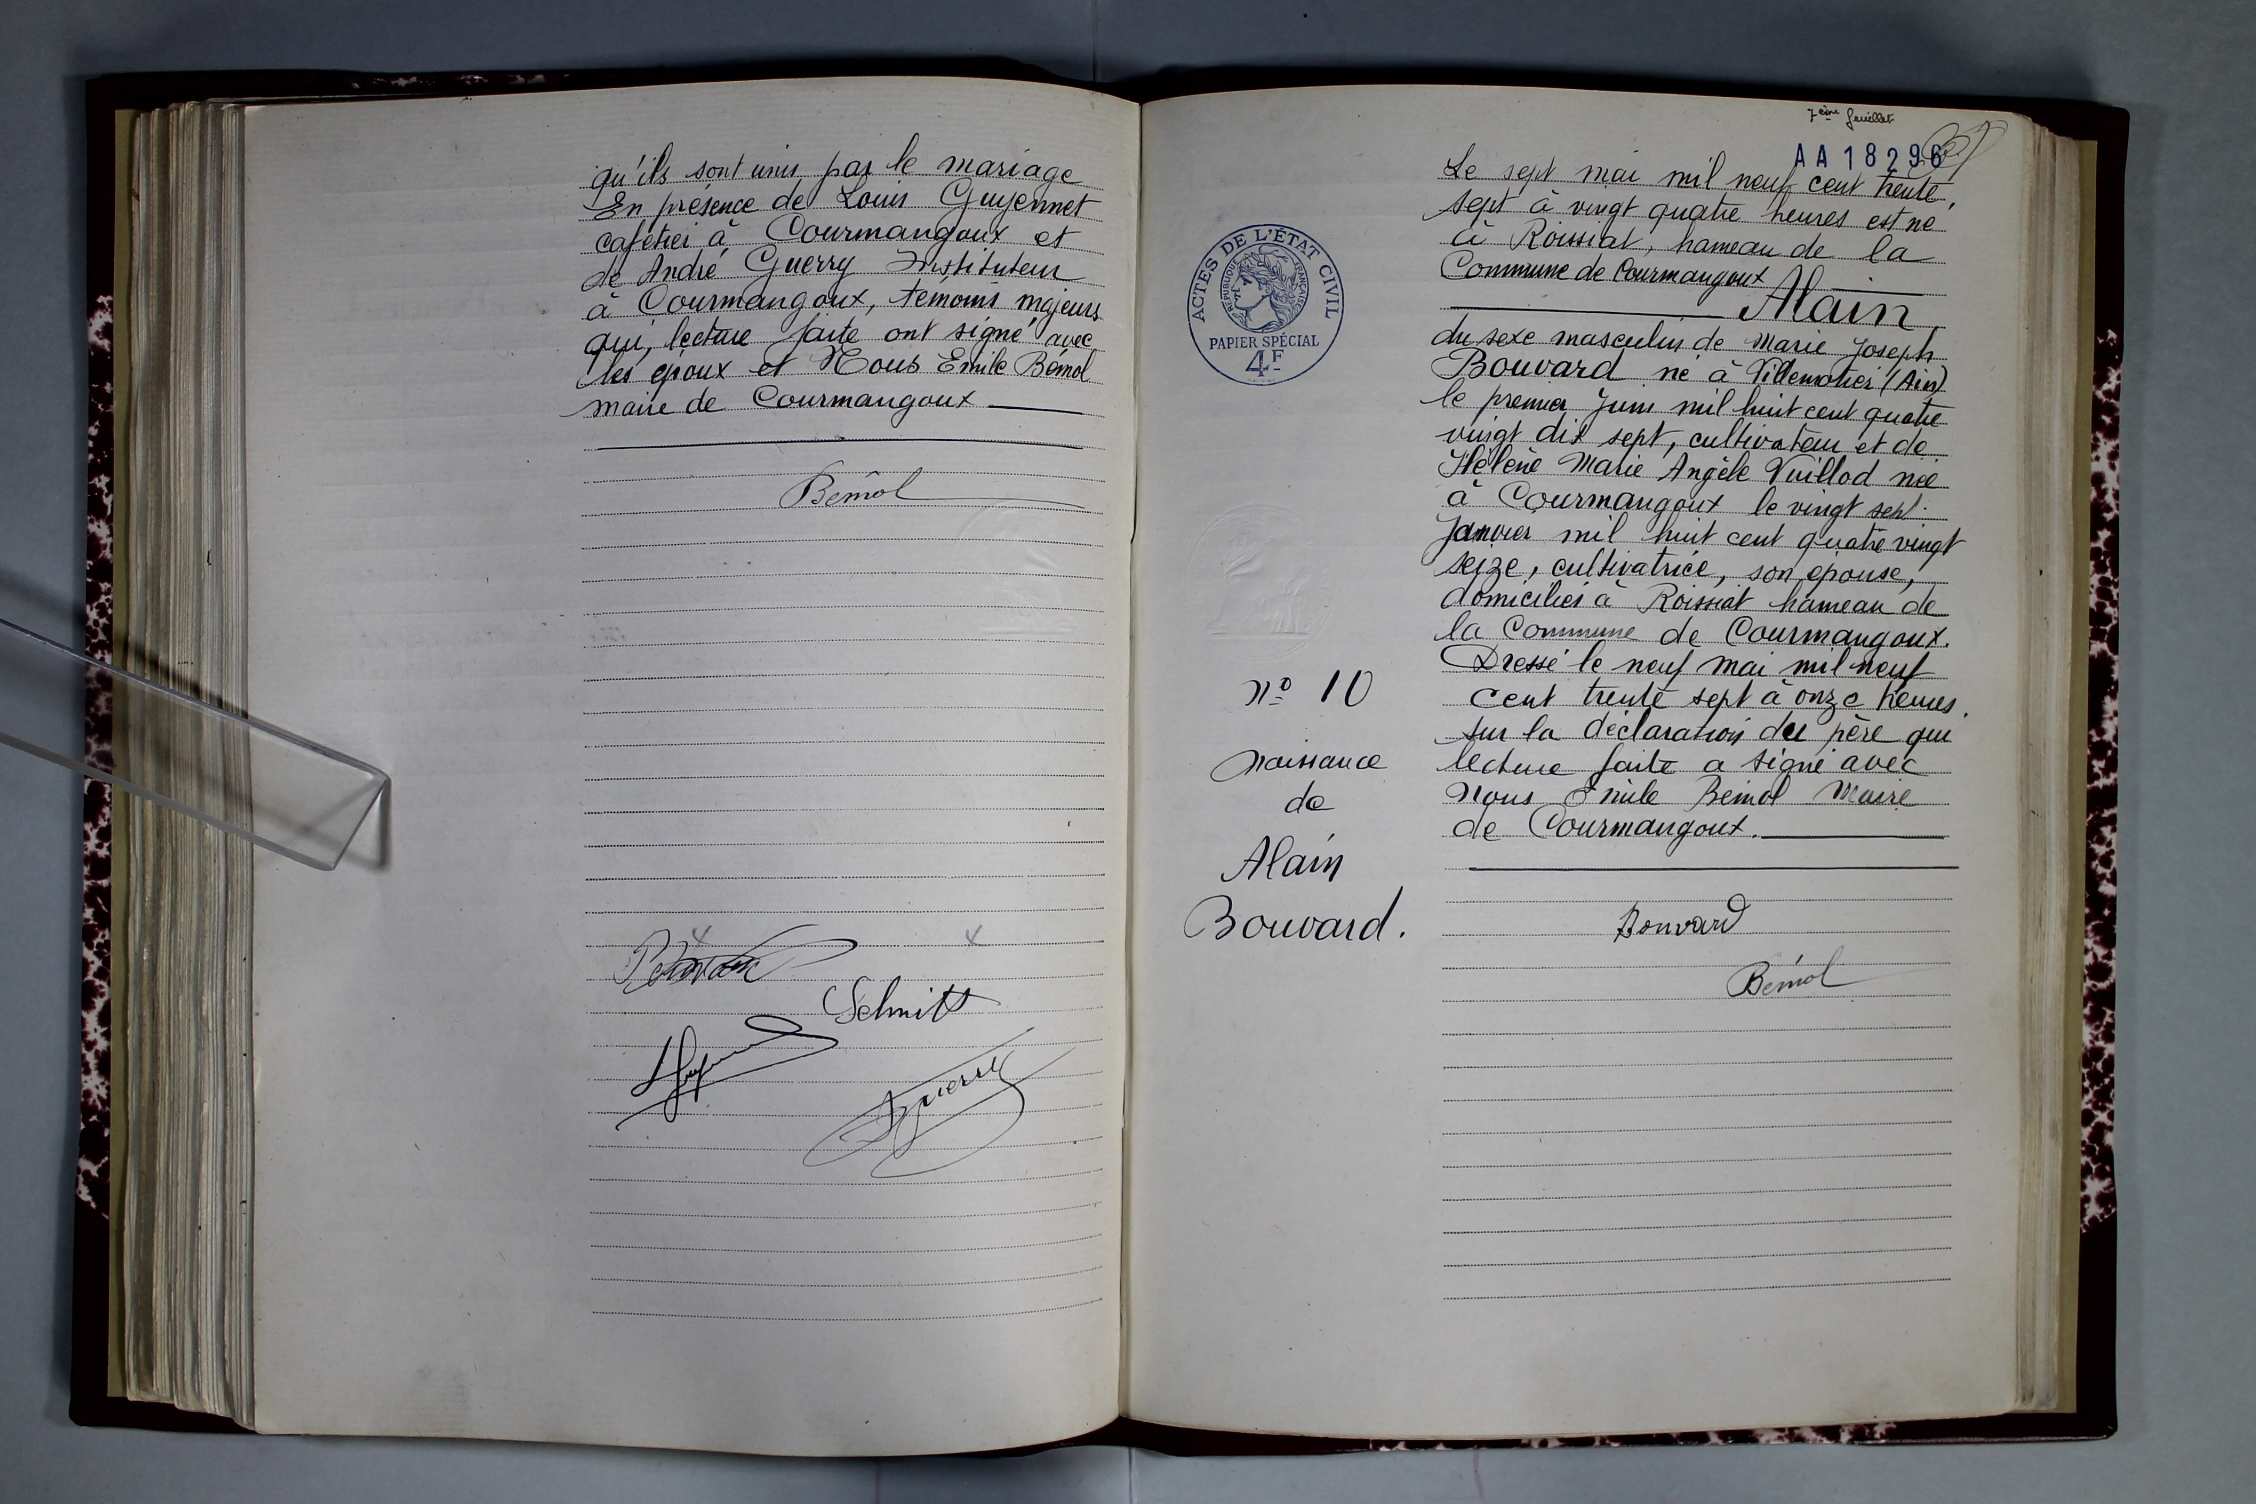 qu'ils sont unis par le mariage
En présence de Louis Guyennet
cafetier à Courmangoux et
de André Guerry Instituteur
à Courmangoux, témoins majeurs
qui, lecture faite ont signé avec
les époux et Nous Emile Bémol
maire de Courmangoux
Bémol
Schmitt
Guerry
7ème feuillet
AA18296
ACTES DE L'ÉTAT CIVIL
RÉPUBLIQUE FRANÇAISE
PAPIER SPÉCIAL
4F
No 10
Naissance
de
Alain
Bouvard.
Le sept mai mil neuf cent trente
sept à vingt quatre heures est né
à Roissiat, hameau de la
Commune de Courmangoux
Alain
du sexe masculin de Marie Joseph
Bouvard né à Villemotier (Ain)
le premier Juin mil huit cent quatre
vingt dix sept, cultivateur et de
Hélène Marie Angèle Vuillod née
à Courmangoux le vingt sept
Janvier mil huit cent quatre vingt
seize, cultivatrice, son épouse,
domiciliés à Roissiat hameau de
la Commune de Courmangoux.
Dressé le neuf mai mil neuf
cent trente sept à onze heures
sur la déclaration du père qui
lecture faite a signé avec
Nous Emile Bémol Maire
de Courmangoux.
Bouvard
Bémol